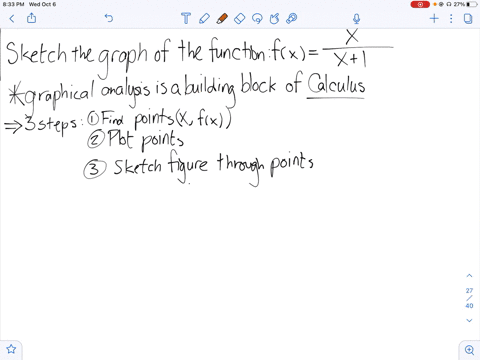 8:33 PM Wed Oct 6
27%
Sketch the graph of the function: f(x) = x/(x+1)
*graphical analysis is a building block of Calculus
⇒ 3 steps: ① Find points (x, f(x))
② Plot points
③ Sketch figure through points
27
/
40